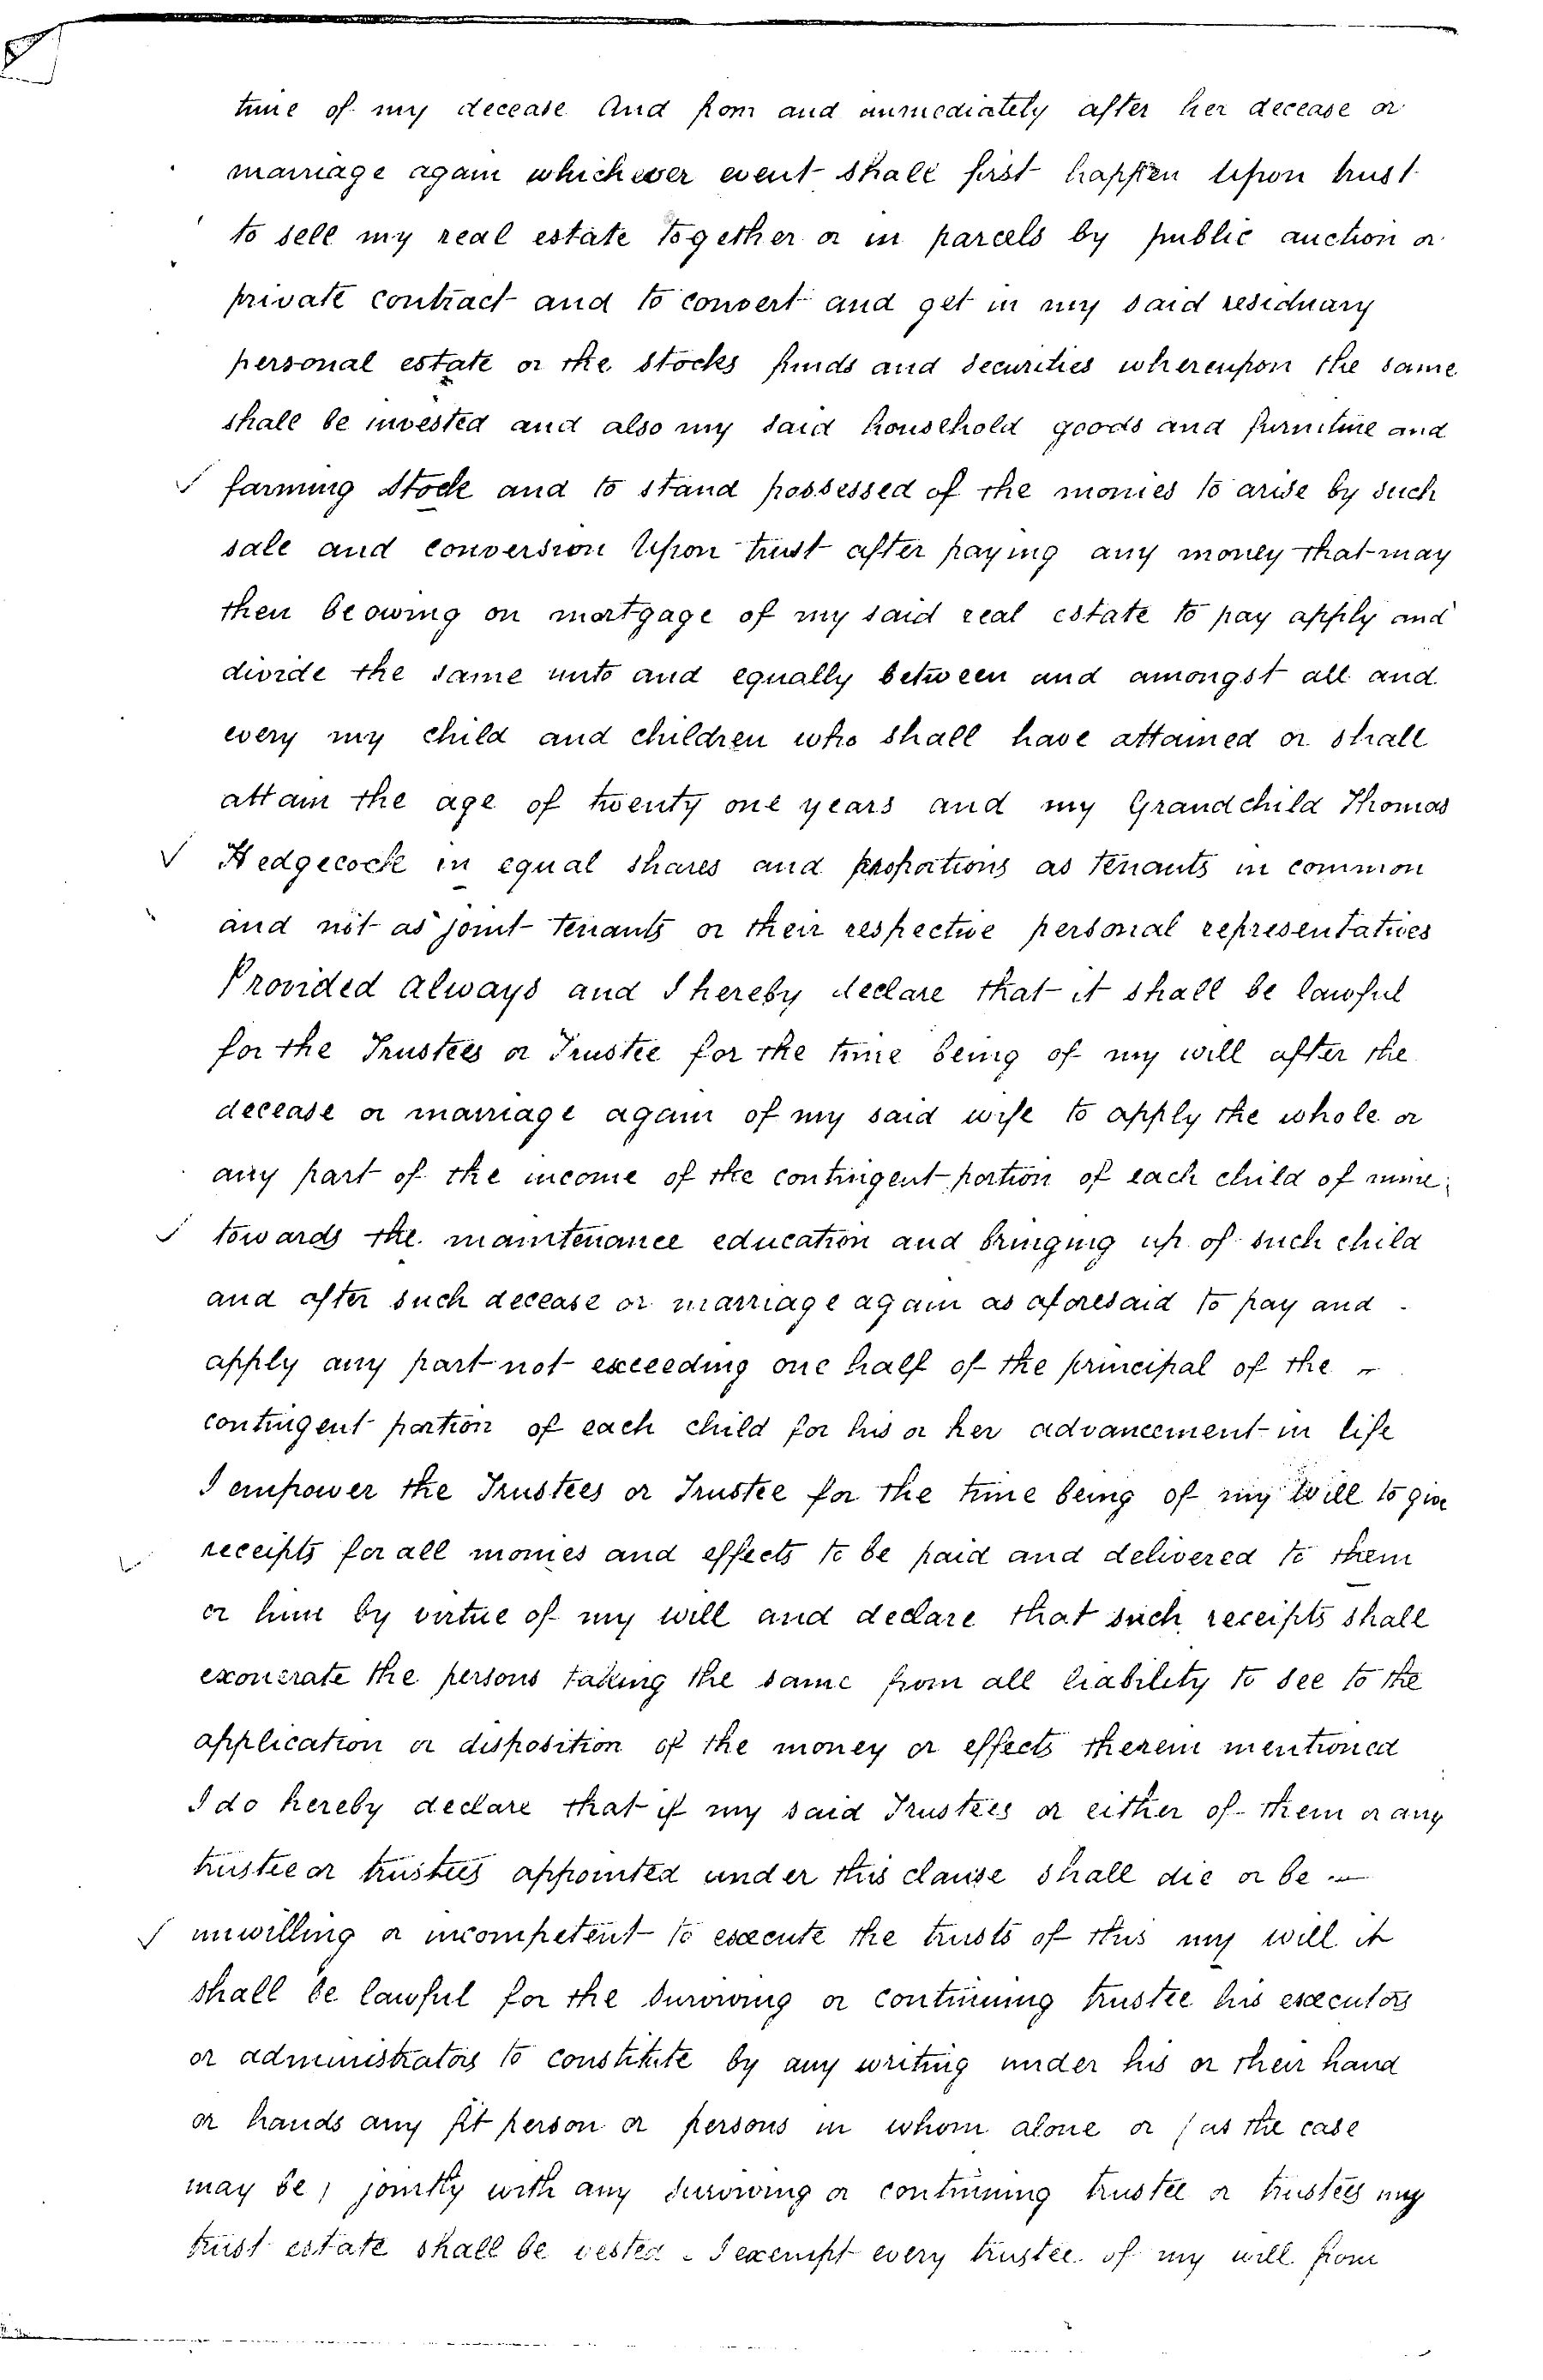 time of my decease And from and immediately after her decease or
marriage again whichever event shall first happen Upon trust
to sell my real estate together or in parcels by public auction or
private contract and to convert and get in my said residuary
personal estate or the stocks funds and securities whereupon the same
shall be invested and also my said household goods and furniture and
farming stock and to stand possessed of the monies to arise by such
sale and conversion Upon trust after paying any money that may
then be owing on mortgage of my said real estate to pay apply and
divide the same unto and equally between and amongst all and
every my child and children who shall have attained or shall
attain the age of twenty one years and my Grandchild Thomas
Hedgecock in equal shares and proportions as tenants in common
and not as joint tenants or their respective personal representatives
Provided always and I hereby declare that it shall be lawful
for the Trustees or Trustee for the time being of my will after the
decease or marriage again of my said wife to apply the whole or
any part of the income of the contingent portion of each child of mine
towards the maintenance education and bringing up of such child
and after such decease or marriage again as aforesaid to pay and
apply any part not exceeding one half of the principal of the
contingent portion of each child for his or her advancement in life
I empower the Trustees or Trustee for the time being of my Will to give
receipts for all monies and effects to be paid and delivered to them
or him by virtue of my will and declare that such receipts shall
exonerate the persons taking the same from all liability to see to the
application or disposition of the money or effects therein mentioned
I do hereby declare that if my said Trustees or either of them or any
trustee or trustees appointed under this clause shall die or be
unwilling or incompetent to execute the trusts of this my will it
shall be lawful for the surviving or continuing trustee his executors
or administrators to constitute by any writing under his or their hand
or hands any fit person or persons in whom alone or (as the case
may be) jointly with any surviving or continuing trustee or trustees my
trust estate shall be vested - I exempt every trustee of my will from